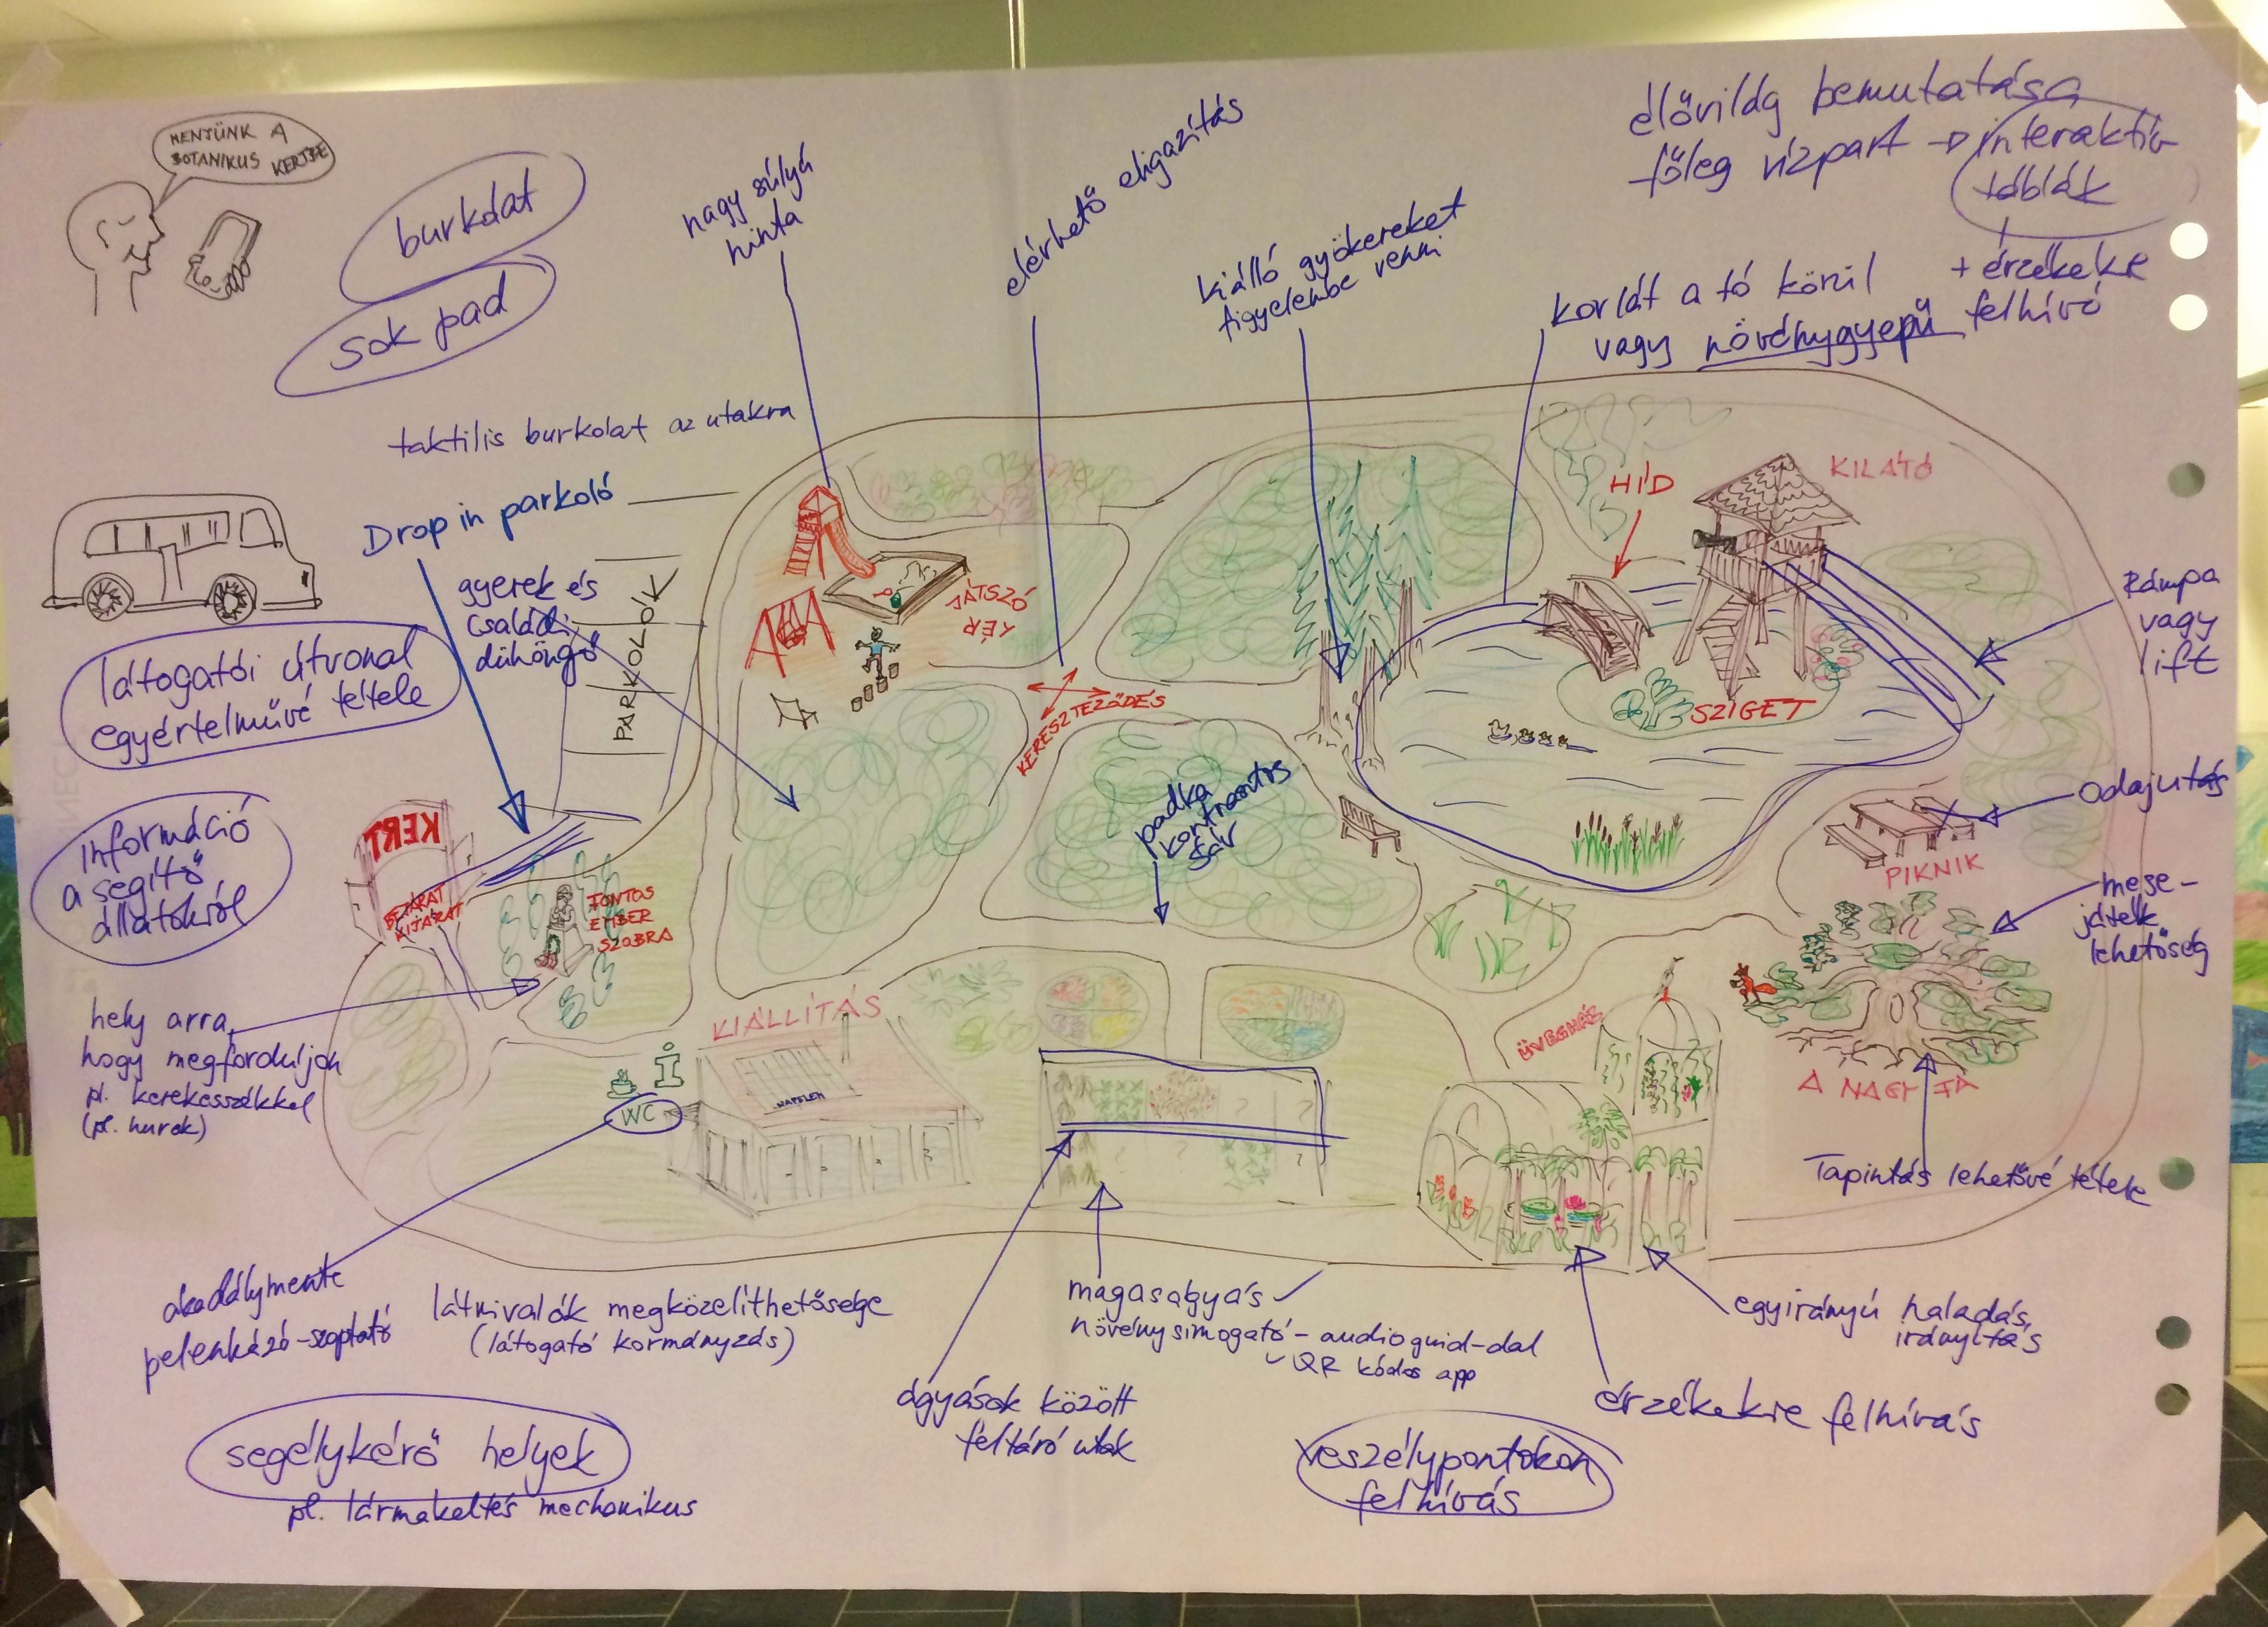 MENJÜNK A
BOTANIKUS KERTBE
burkolat
sok pad
nagy súlyú
hinta
elérhető eligazítás
kiálló gyökereket
figyelembe venni
élővilág bemutatása
főleg vízpart → interaktív
táblák
+ érzékekre
felhívó
korlát a tó körül
vagy növénygyepű
taktilis burkolat az utakra
Drop in parkoló
gyerek és
családi
dühöngő
PARKOLÓ
látogatói útvonal
egyértelművé tétele
Információ
a segítő
állatokról
KERT
BEJÁRAT
KIJÁRAT
FONTOS
EMBER
SZOBRA
JÁTSZÓ
TÉR
KERESZTEZŐDÉS
HÍD
KILÁTÓ
SZIGET
Rámpa
vagy
lift
padka
kontrasztos
sáv
Odajutás
PIKNIK
mese-
játék
lehetőség
hely arra,
hogy megforduljon
pl. kerekesszékkel
(pl. hurok)
KIÁLLÍTÁS
i
WC
NAPELEM
ÜVEGHÁZ
A NAGY FA
Tapintás lehetővé tétele
akadálymente
pelenkázó-szoptató
látnivalók megközelíthetősége
(látogató kormányzás)
magaságyás
növénysimogató - audioguid-dal
QR kódos app
egyirányú haladás,
irányítás
ágyások között
feltáró utak
érzékekre felhívás
segélykérő helyek
pl. lármakeltés mechanikus
veszélypontokon
felhívás